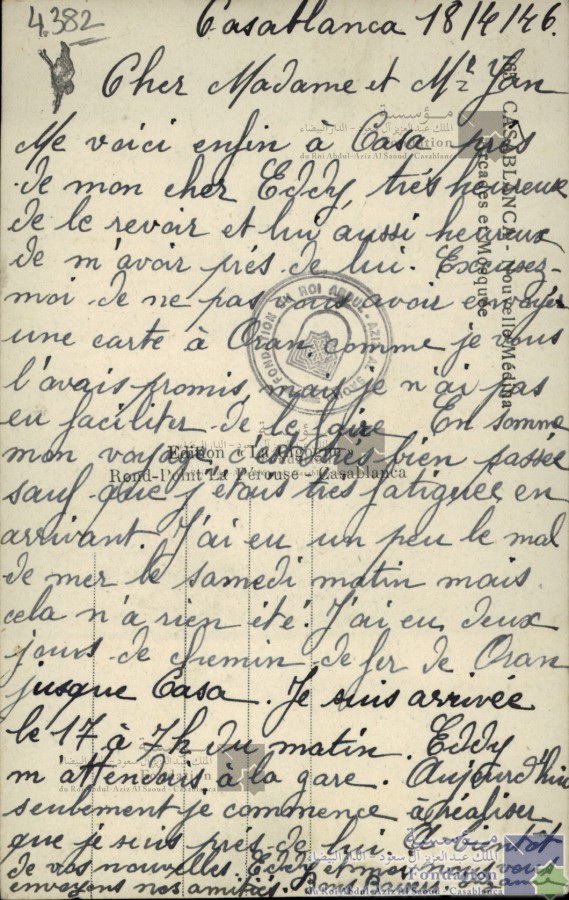 4.382
Casablanca 18/4/46.
Cher Madame et Mr Jan
Me voici enfin à Casa près
de mon cher Eddy, très heureuse
de le revoir et lui aussi heureux
de m'avoir prés de lui. Excusez-
moi de ne pas vous avoir envoyer
une carte à Oran, comme je vous
l'avais promis, mais je n'ai pas
eu faciliter de le faire. En somme
mon voyage c'est très bien passée
sauf que j'étais très fatiguée en
arrivant. J'ai eu un peu le mal
de mer le samedi matin mais
cela n'a rien été. J'ai eu deux
jours de chemin de fer de Oran
jusque Casa. Je suis arrivée
le 17 à 7h du matin. Eddy
m'attendais à la gare. Aujourd'hui
seulement je commence à réaliser
que je suis prés de lui.
de vos nouvelles. Eddy et moi vous
envoyons nos amitiés. Bons Baisers.
CASABLANCA - Nouvelle Médina
Arcades et Mosquée
Edition « La Cigogne »
Rond-Point La Pérouse - Casablanca
FONDATION DU ROI ABDUL-AZIZ AL SAOUD
مؤسسة
الملك عبد العزيز آل سعود - الدار البيضاء
Fondation
du Roi Abdul-Aziz Al Saoud - Casablanca